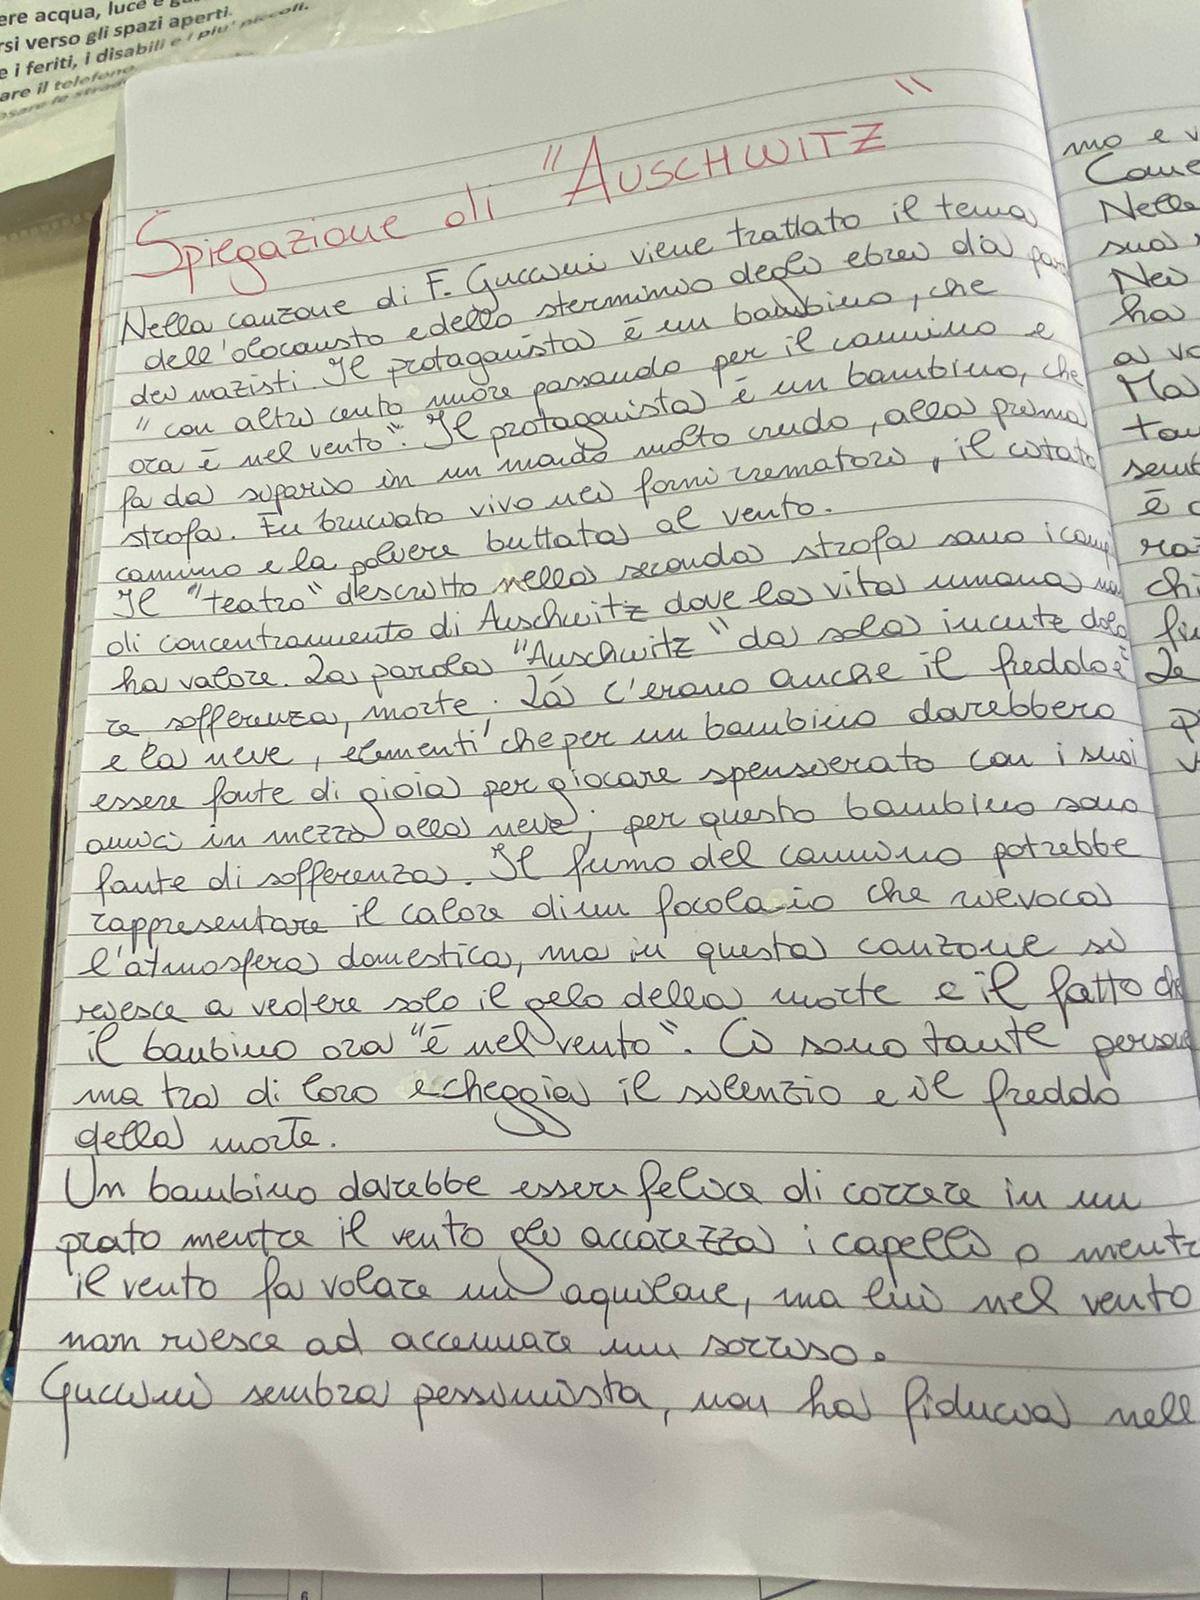 ere acqua, luce e
rsi verso gli spazi aperti.
e i feriti, i disabili e i piu' piccoli.
are il telefono
Spiegazione di "AUSCHWITZ"
Nella canzone di F. Guccini viene trattato il tema
dell'olocausto e dello sterminio degli ebrei da par
dei nazisti. Il protagonista è un bambino, che
"con altri cento muore passando per il camino e
ora è nel vento". Il protagonista è un bambino, che
fa da sipario in un mondo molto crudo, alla prima
strofa. Fu bruciato vivo nei forni crematori, il citato
camino e la polvere buttata al vento.
Il "teatro" descritto nella seconda strofa sono i camp
di concentramento di Auschwitz dove la vita umana no
ha valore. La parola "Auschwitz" da sola incute dolo
re, sofferenza, morte. Là c'erano anche il freddo
e la neve, elementi che per un bambino dovrebbero
essere fonte di gioia per giocare spensierato con i suoi
amici in mezzo alla neve; per questo bambino sono
fonte di sofferenza. Il fumo del camino potrebbe
rappresentare il calore di un focolaio che rievoca
l'atmosfera domestica, ma in questa canzone si
riesce a vedere solo il gelo della morte e il fatto che
il bambino ora "è nel vento". Ci sono tante persone
ma tra di loro echeggia il silenzio e il freddo
della morte.
Un bambino dovrebbe essere felice di correre in un
prato mentre il vento gli accarezza i capelli o mentr
il vento fa volare un aquilone, ma lui nel vento
non riesce ad accennare un sorriso.
Guccini sembra pessimista, non ha fiducia nell
mo e v
Come
Nella
sua
Nei
ha
a vo
Ma
tou
semb
è c
raz
chi
fin
Le
p
v
6